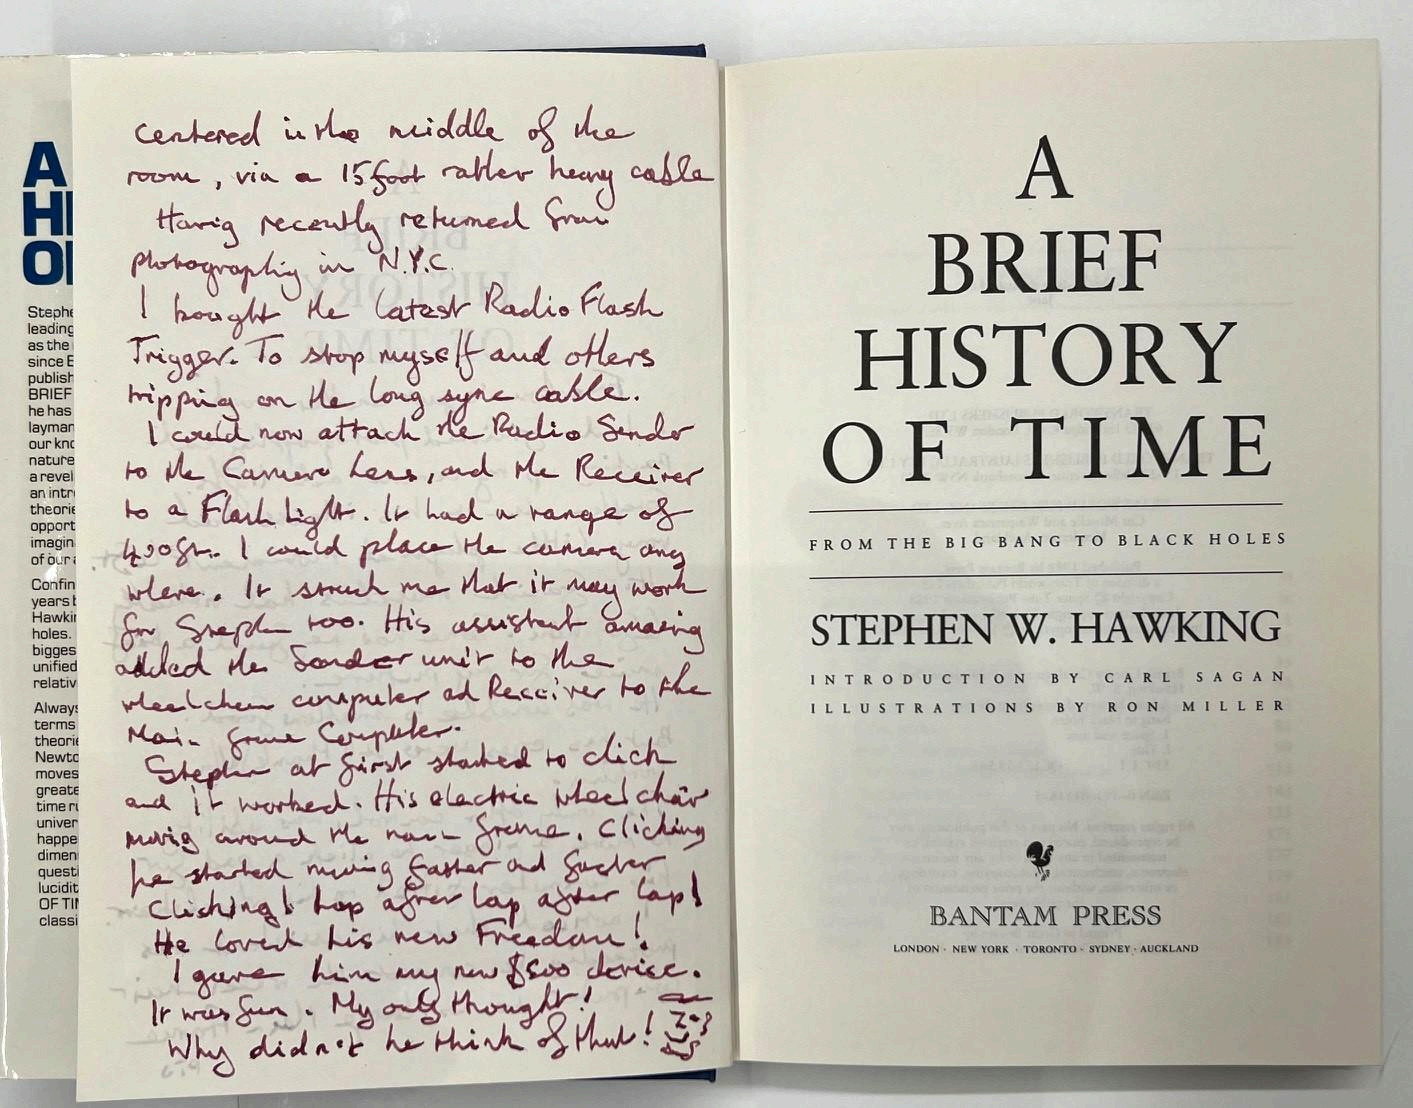 A
HI
OF
Stephe
leading
as the
since E
publish
BRIEF
he has
layman
our kno
nature
a revel
an intr
theorie
opport
imagin
of our a
Confin
years b
Hawkin
holes.
biggest
unified
relativ
Always
terms
theorie
Newto
moves
greate
time ru
univer
happe
dimen
questi
lucidit
OF TIM
classi
centered in the middle of the
room, via a 15 foot rather heavy cable
Having recently returned from
photographing in N.Y.C.
I bought the latest Radio Flash
Trigger. To stop myself and others
tripping on the long sync cable.
I could now attach the Radio Sender
to the Camera Lens, and the Receiver
to a Flash Light. It had a range of
I could place the camera any
where. It struck me that it may work
for Stephen too. His assistant amazing
added the Sender unit to the
wheelchair computer ad Receiver to the
Main frame Computer.
Stephen at first started to click
and it worked. His electric wheelchair
moving around the main frame. Clicking
he started moving faster and faster
Clicking! Lap after lap after lap!
He loved his new Freedom!
I gave him my new $500 device.
It was fun. My only thought!
Why didn't he think of that!
A
BRIEF
HISTORY
OF TIME
FROM THE BIG BANG TO BLACK HOLES
STEPHEN W. HAWKING
INTRODUCTION BY CARL SAGAN
ILLUSTRATIONS BY RON MILLER
BANTAM PRESS
LONDON · NEW YORK · TORONTO · SYDNEY · AUCKLAND